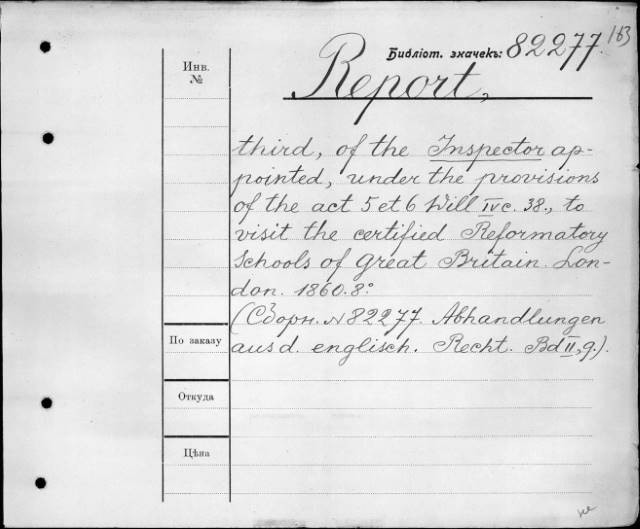 163
Библіот. значекъ: 82277.
Инв.
№
Report,
third, of the Inspector ap-
pointed, under the provisions
of the act 5 et 6 Will IV c. 38., to
visit the certified Reformatory
Schools of Great Britain. Lon-
don. 1860. 8°
(Сборн. № 82277. Abhandlungen
По заказу
aus d. englisch. Recht. Bd II, 9.).
Откуда
Цѣна